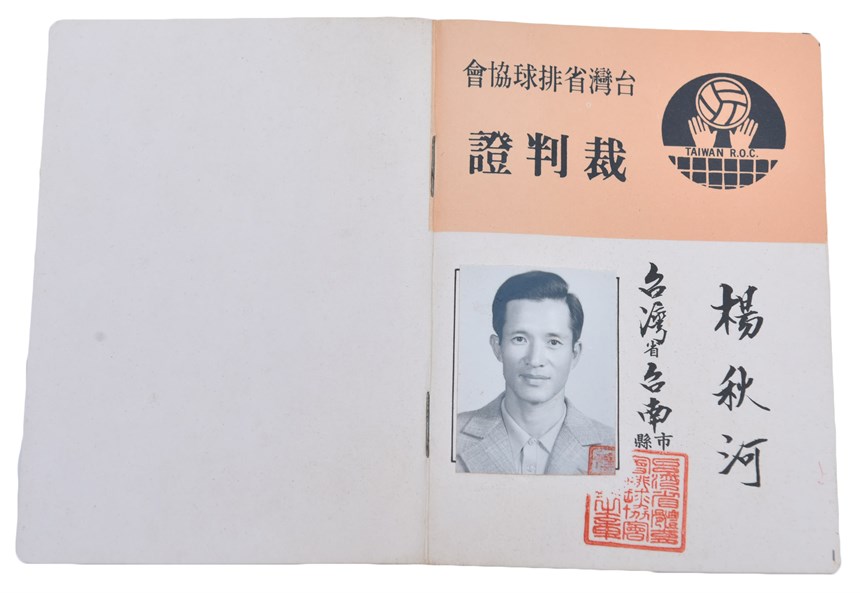 台灣省排球協會
裁判證
TAIWAN R.O.C.
楊秋河
台灣省台南縣市